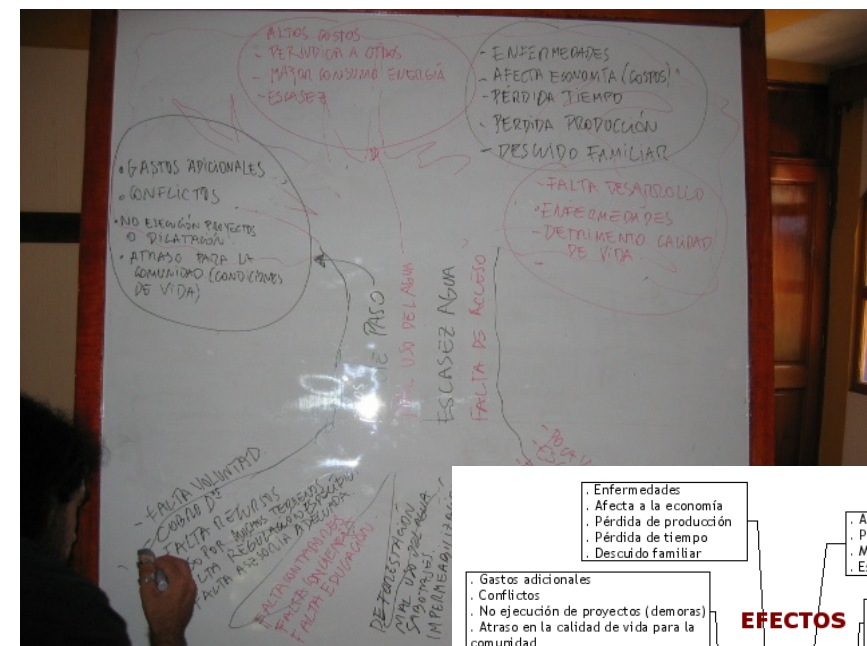 ALTOS COSTOS
- PERJUDICA A OTROS
- MAYOR CONSUMO ENERGÍA
- ESCASEZ
- ENFERMEDADES
- AFECTA ECONOMÍA (COSTOS)
- PÉRDIDA TIEMPO
- PERDIDA PRODUCCIÓN
- DESCUIDO FAMILIAR
• GASTOS ADICIONALES
• CONFLICTOS
• NO EJECUCIÓN PROYECTOS
O DILATACIÓN
• ATRASO PARA LA
COMUNIDAD (CONDICIONES
DE VIDA)
- FALTA DESARROLLO
• ENFERMEDADES
- DETRIMENTO CALIDAD
DE VIDA
DE PASO
MAL USO DEL AGUA
ESCASEZ AGUA
FALTA DE ACCESO
- FALTA VOLUNTAD
- COBRO
FALTA RECURSOS
POR MUCHOS TERRENOS
FALTA REGULACIÓN
FALTA ASESORIA ADECUADA
FALTA
FALTA CONCIENCIA
FALTA EDUCACIÓN
DEFORESTACIÓN
MAL USO DEL AGUA
SABOTAJES
- POCA
. Enfermedades
. Afecta a la economía
. Pérdida de producción
. Pérdida de tiempo
. Descuido familiar
. Gastos adicionales
. Conflictos
. No ejecución de proyectos (demoras)
. Atraso en la calidad de vida para la
comunidad
EFECTOS